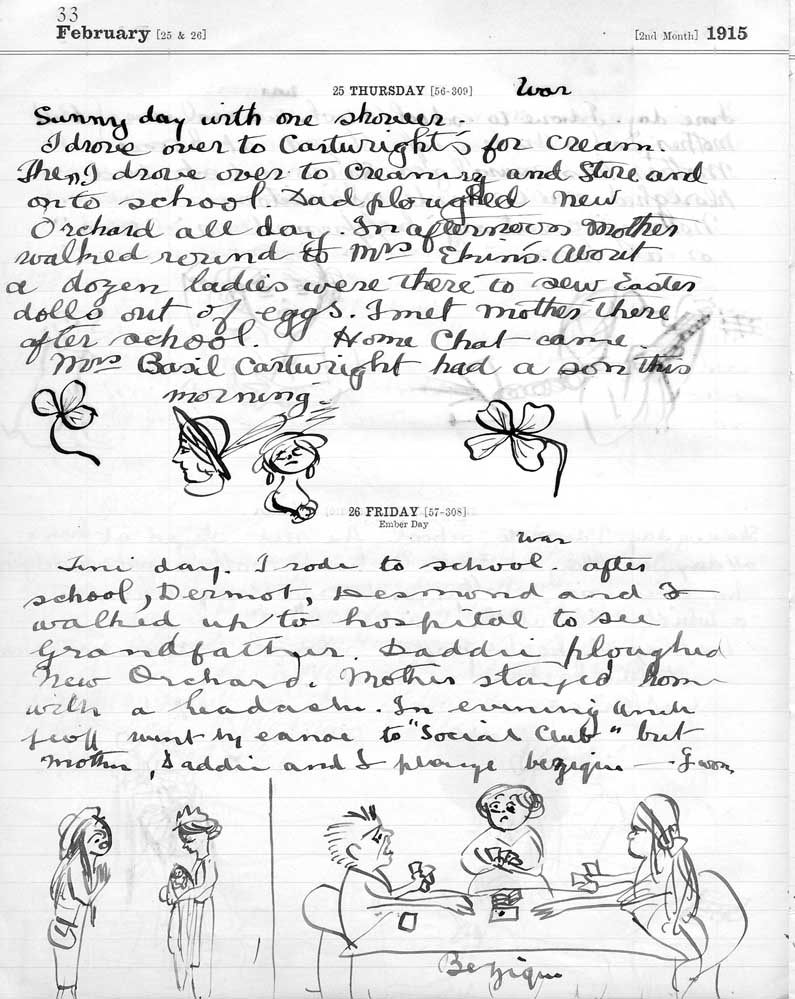 33
February [25 & 26] [2nd Month] 1915
25 THURSDAY [56-309] War
Sunny day with one shower.
I drove over to Cartwright's for cream.
Then I drove over to Creamery and Store and
on to school. Dad ploughed new
Orchard all day. In afternoon Mother
walked round to Mrs Ekins. About
a dozen ladies were there to sew Easter
dolls out of eggs. I met mother there
after school. Home Chat came.
Mrs Basil Cartwright had a son this
morning.
26 FRIDAY [57-308]
Ember Day
War
day. I rode to school. after
school, Dermot, Desmond and I
walked up to hospital to see
Grandfather. Daddie ploughed
New Orchard. Mother stayed home
with a headache. In evening
went by canoe to "Social Club" but
Mother, Daddie and I bezique
Bezique